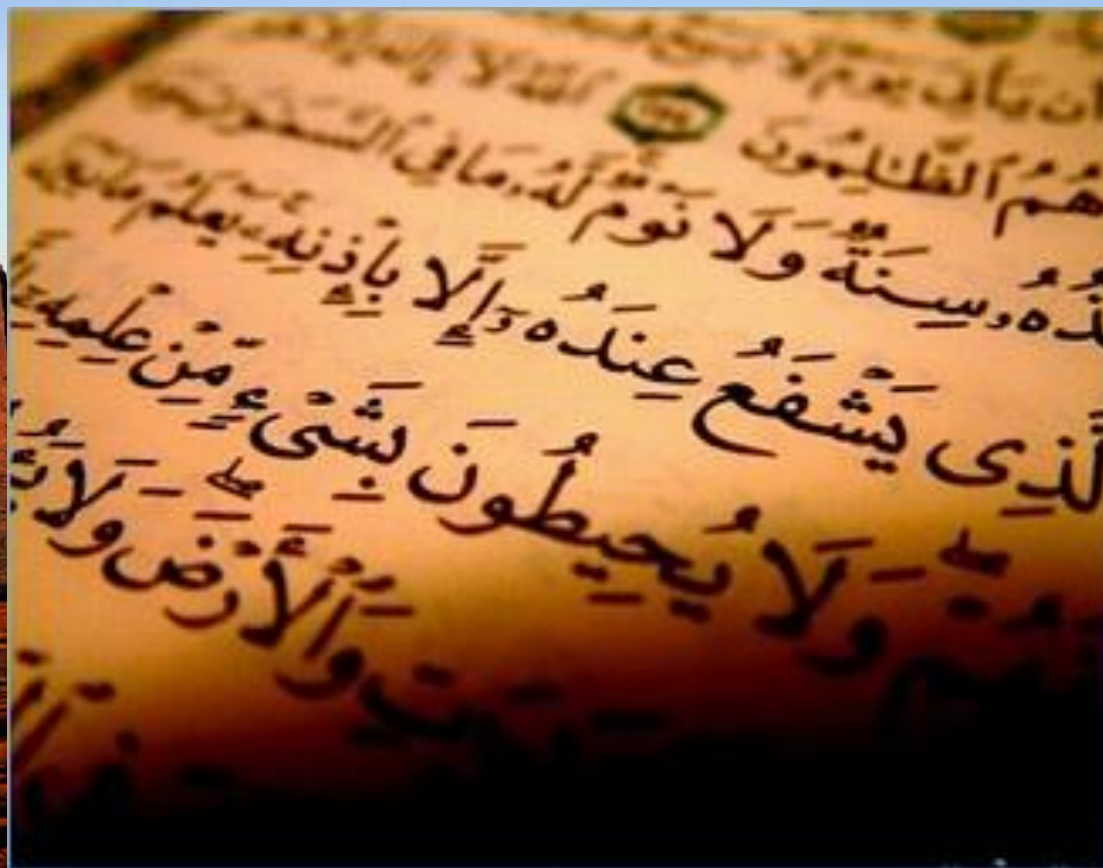 أَن يَأْتِيَ يَوْمٌ لَّا بَيْعٌ
هُمُ ٱلظَّٰلِمُونَ ٱللَّهُ لَآ إِلَٰهَ إِلَّا
سِنَةٌ وَلَا نَوْمٌ لَّهُۥ مَا فِي ٱلسَّمَٰوَٰتِ
يَشْفَعُ عِندَهُۥٓ إِلَّا بِإِذْنِهِۦ يَعْلَمُ مَا بَيْنَ
وَلَا يُحِيطُونَ بِشَىْءٍ مِّنْ عِلْمِهِۦٓ
وَٱلْأَرْضَ وَلَا